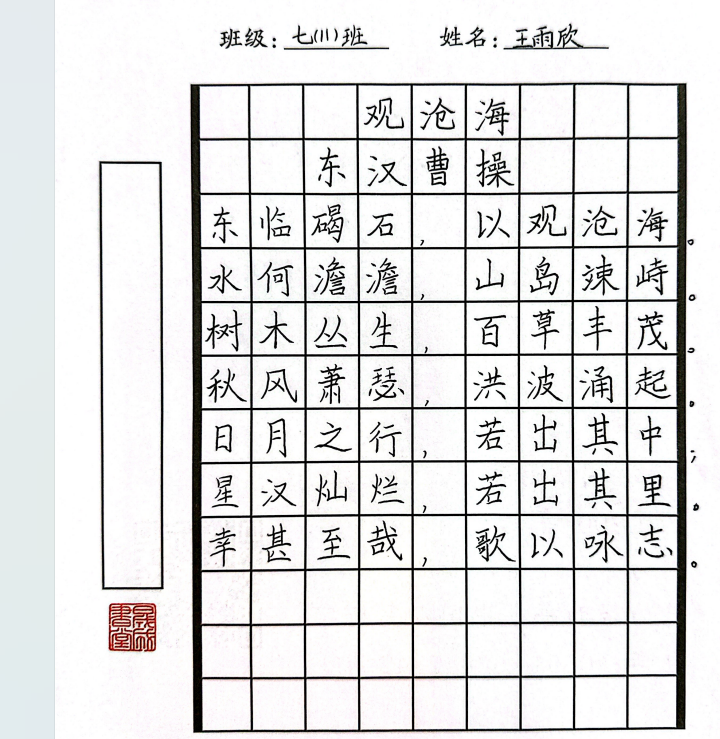 班级：七(11)班 姓名：王雨欣
观沧海
东汉曹操
东临碣石，以观沧海。
水何澹澹，山岛竦峙。
树木丛生，百草丰茂。
秋风萧瑟，洪波涌起。
日月之行，若出其中；
星汉灿烂，若出其里。
幸甚至哉，歌以咏志。